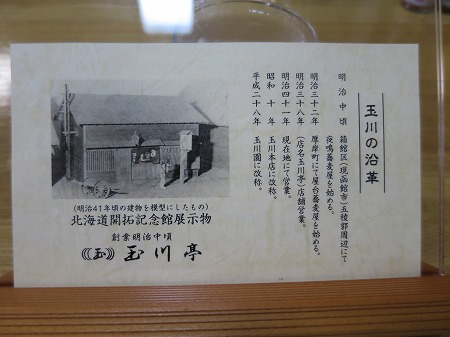 玉川の沿革
明治中頃 箱館区(現函館市)五稜郭周辺にて
夜鳴蕎麦屋を始める。
明治三十二年 厚岸町にて屋台蕎麦屋を始める。
明治三十八年 (店名玉川亭)店舗営業。
明治四十一年 現在地にて営業。
昭和十年 玉川本店に改称。
平成二十八年 玉川園に改称。
(明治41年頃の建物を模型にしたもの)
北海道開拓記念館展示物
創業明治中頃
《玉》玉川亭